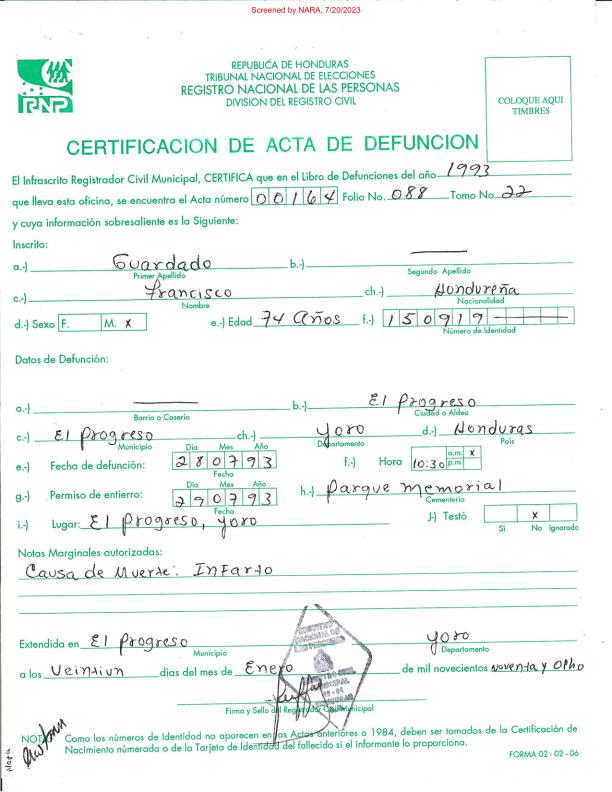 Screened by NARA, 7/20/2023
RNP
REPUBLICA DE HONDURAS
TRIBUNAL NACIONAL DE ELECCIONES
REGISTRO NACIONAL DE LAS PERSONAS
DIVISION DEL REGISTRO CIVIL
COLOQUE AQUI
TIMBRES
CERTIFICACION DE ACTA DE DEFUNCION
El Infrascrito Registrador Civil Municipal, CERTIFICA que en el Libro de Defunciones del año 1993
que lleva esta oficina, se encuentra el Acta número 00164 Folio No. 088 Tomo No. 22
y cuya información sobresaliente es la Siguiente:
Inscrito:
a.-) Guardado b.-)
Primer Apellido Segundo Apellido
c.-) Francisco ch.-) Hondureña
Nombre Nacionalidad
d.-) Sexo F. M. x e.-) Edad 74 Años f.-) 150919
Número de Identidad
Datos de Defunción:
a.-) b.-) El Progreso
Barrio o Caserio Ciudad o Aldea
c.-) El Progreso ch.-) Yoro d.-) Honduras
Municipio Departamento Pais
Dia Mes Año
e.-) Fecha de defunción: 280793 f.-) Hora 10:30 a.m. x p.m.
Fecha
Dia Mes Año
g.-) Permiso de entierro: 290793 h.-) Parque Memorial
Fecha Cementerio
i.-) Lugar: El Progreso, Yoro J-) Testó x
Si No Ignorado
Notas Marginales autorizadas:
Causa de Muerte: Infarto
Extendida en El Progreso Yoro
Municipio Departamento
a los Veintiun dias del mes de Enero de mil novecientos Noventa y Ocho
Firma y Sello del Registrador Civil Municipal
NOTA: Como los números de Identidad no aparecen en las Actas anteriores a 1984, deben ser tomados de la Certificación de
Nacimiento númerada o de la Tarjeta de Identidad del fallecido si el informante lo proporciona.
FORMA 02-02-06